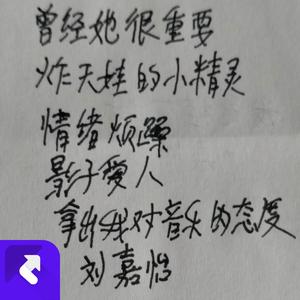 曾经她很重要
炸天娃的小精灵
情绪烦躁
影子爱人
拿出我对音乐的态度
刘嘉怡